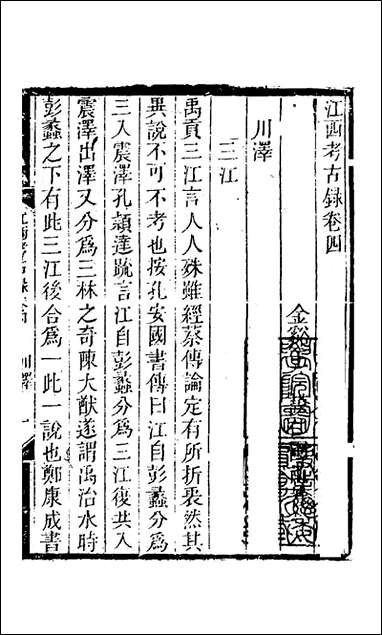 江西考古録卷四
金谿
川澤
三江
禹貢三江言人人殊雖經蔡傳論定有所折衷然其
異說不可不考也按孔安國書傳曰江自彭蠡分爲
三入震澤孔頴達䟽言江自彭蠡分爲三江復共入
震澤出澤又分爲三林之奇陳大猷遂謂禹治水時
彭蠡之下有此三江後合爲一此一說也鄭康成書
川澤